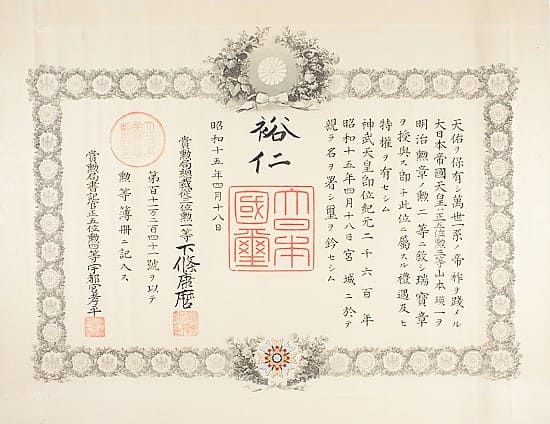 天佑ヲ保有シ萬世一系ノ帝祚ヲ踐メル
大日本帝國天皇ハ正五位勲三等山本瑛一ヲ
明治勲章ノ勲二等ニ敍シ瑞寶章
ヲ授與ス即チ此位ニ屬スル禮遇及ヒ
特權ヲ有セシム
神武天皇即位紀元二千六百年
昭和十五年四月十八日宮城ニ於テ
親ラ名ヲ署シ璽ヲ鈐セシム
裕仁
大日本
國璽
昭和十五年四月十八日
賞勲局總裁從三位勲一等下條康麿
第百十二万二百四十一號ヲ以テ
勲等簿冊ニ記入ス
賞勲局書記官正五位勲四等宇都宮孝平